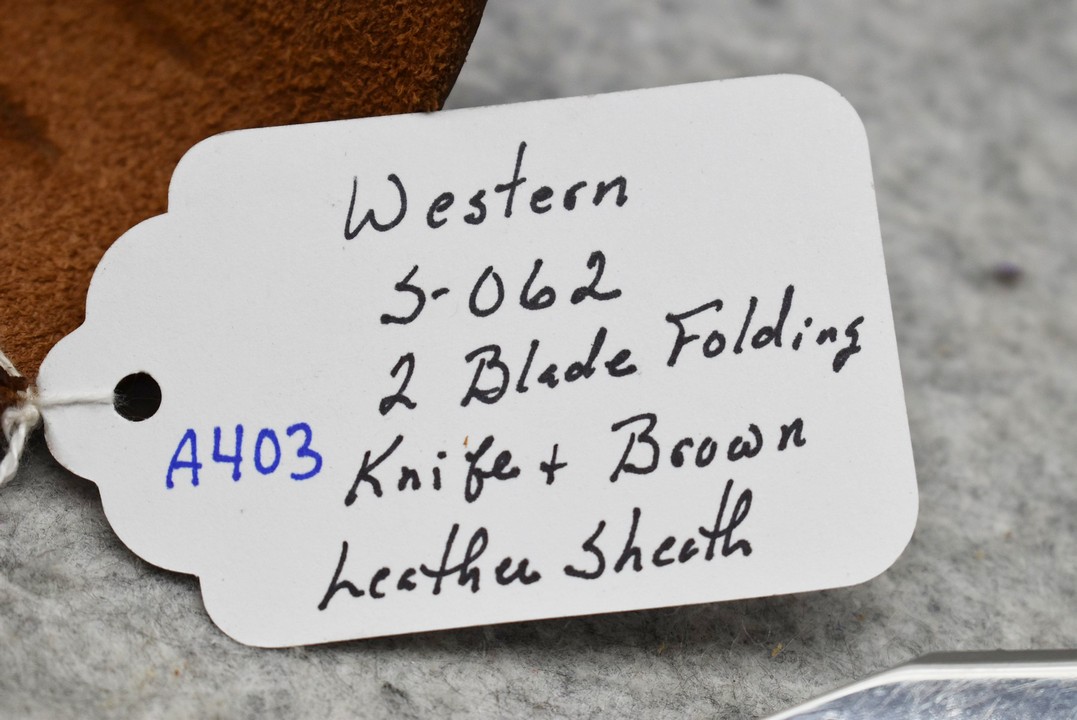 Western
S-062
2 Blade Folding
A403 Knife + Brown
Leather Sheath